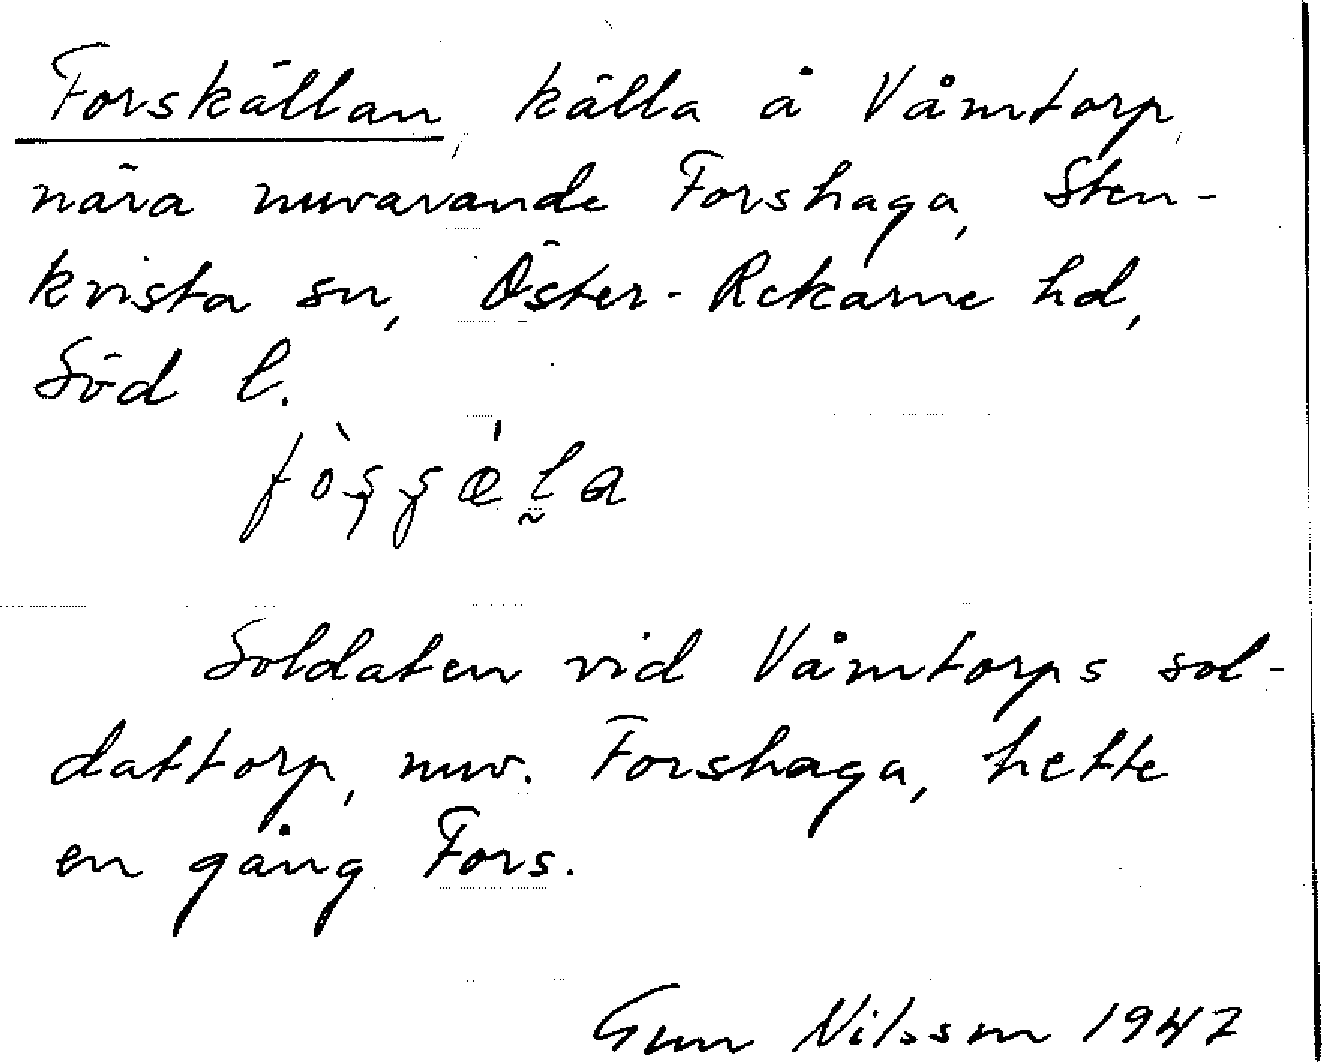 Forskällan, källa å Våmtorp,
nära nuvarande Forshaga, Sten-
kvista sn, Öster-Rekarne hd,
Söd l.
Soldaten vid Våmtorps sol-
dattorp, nuv. Forshaga, hette
en gång Fors.
Gun Nilsson 1947